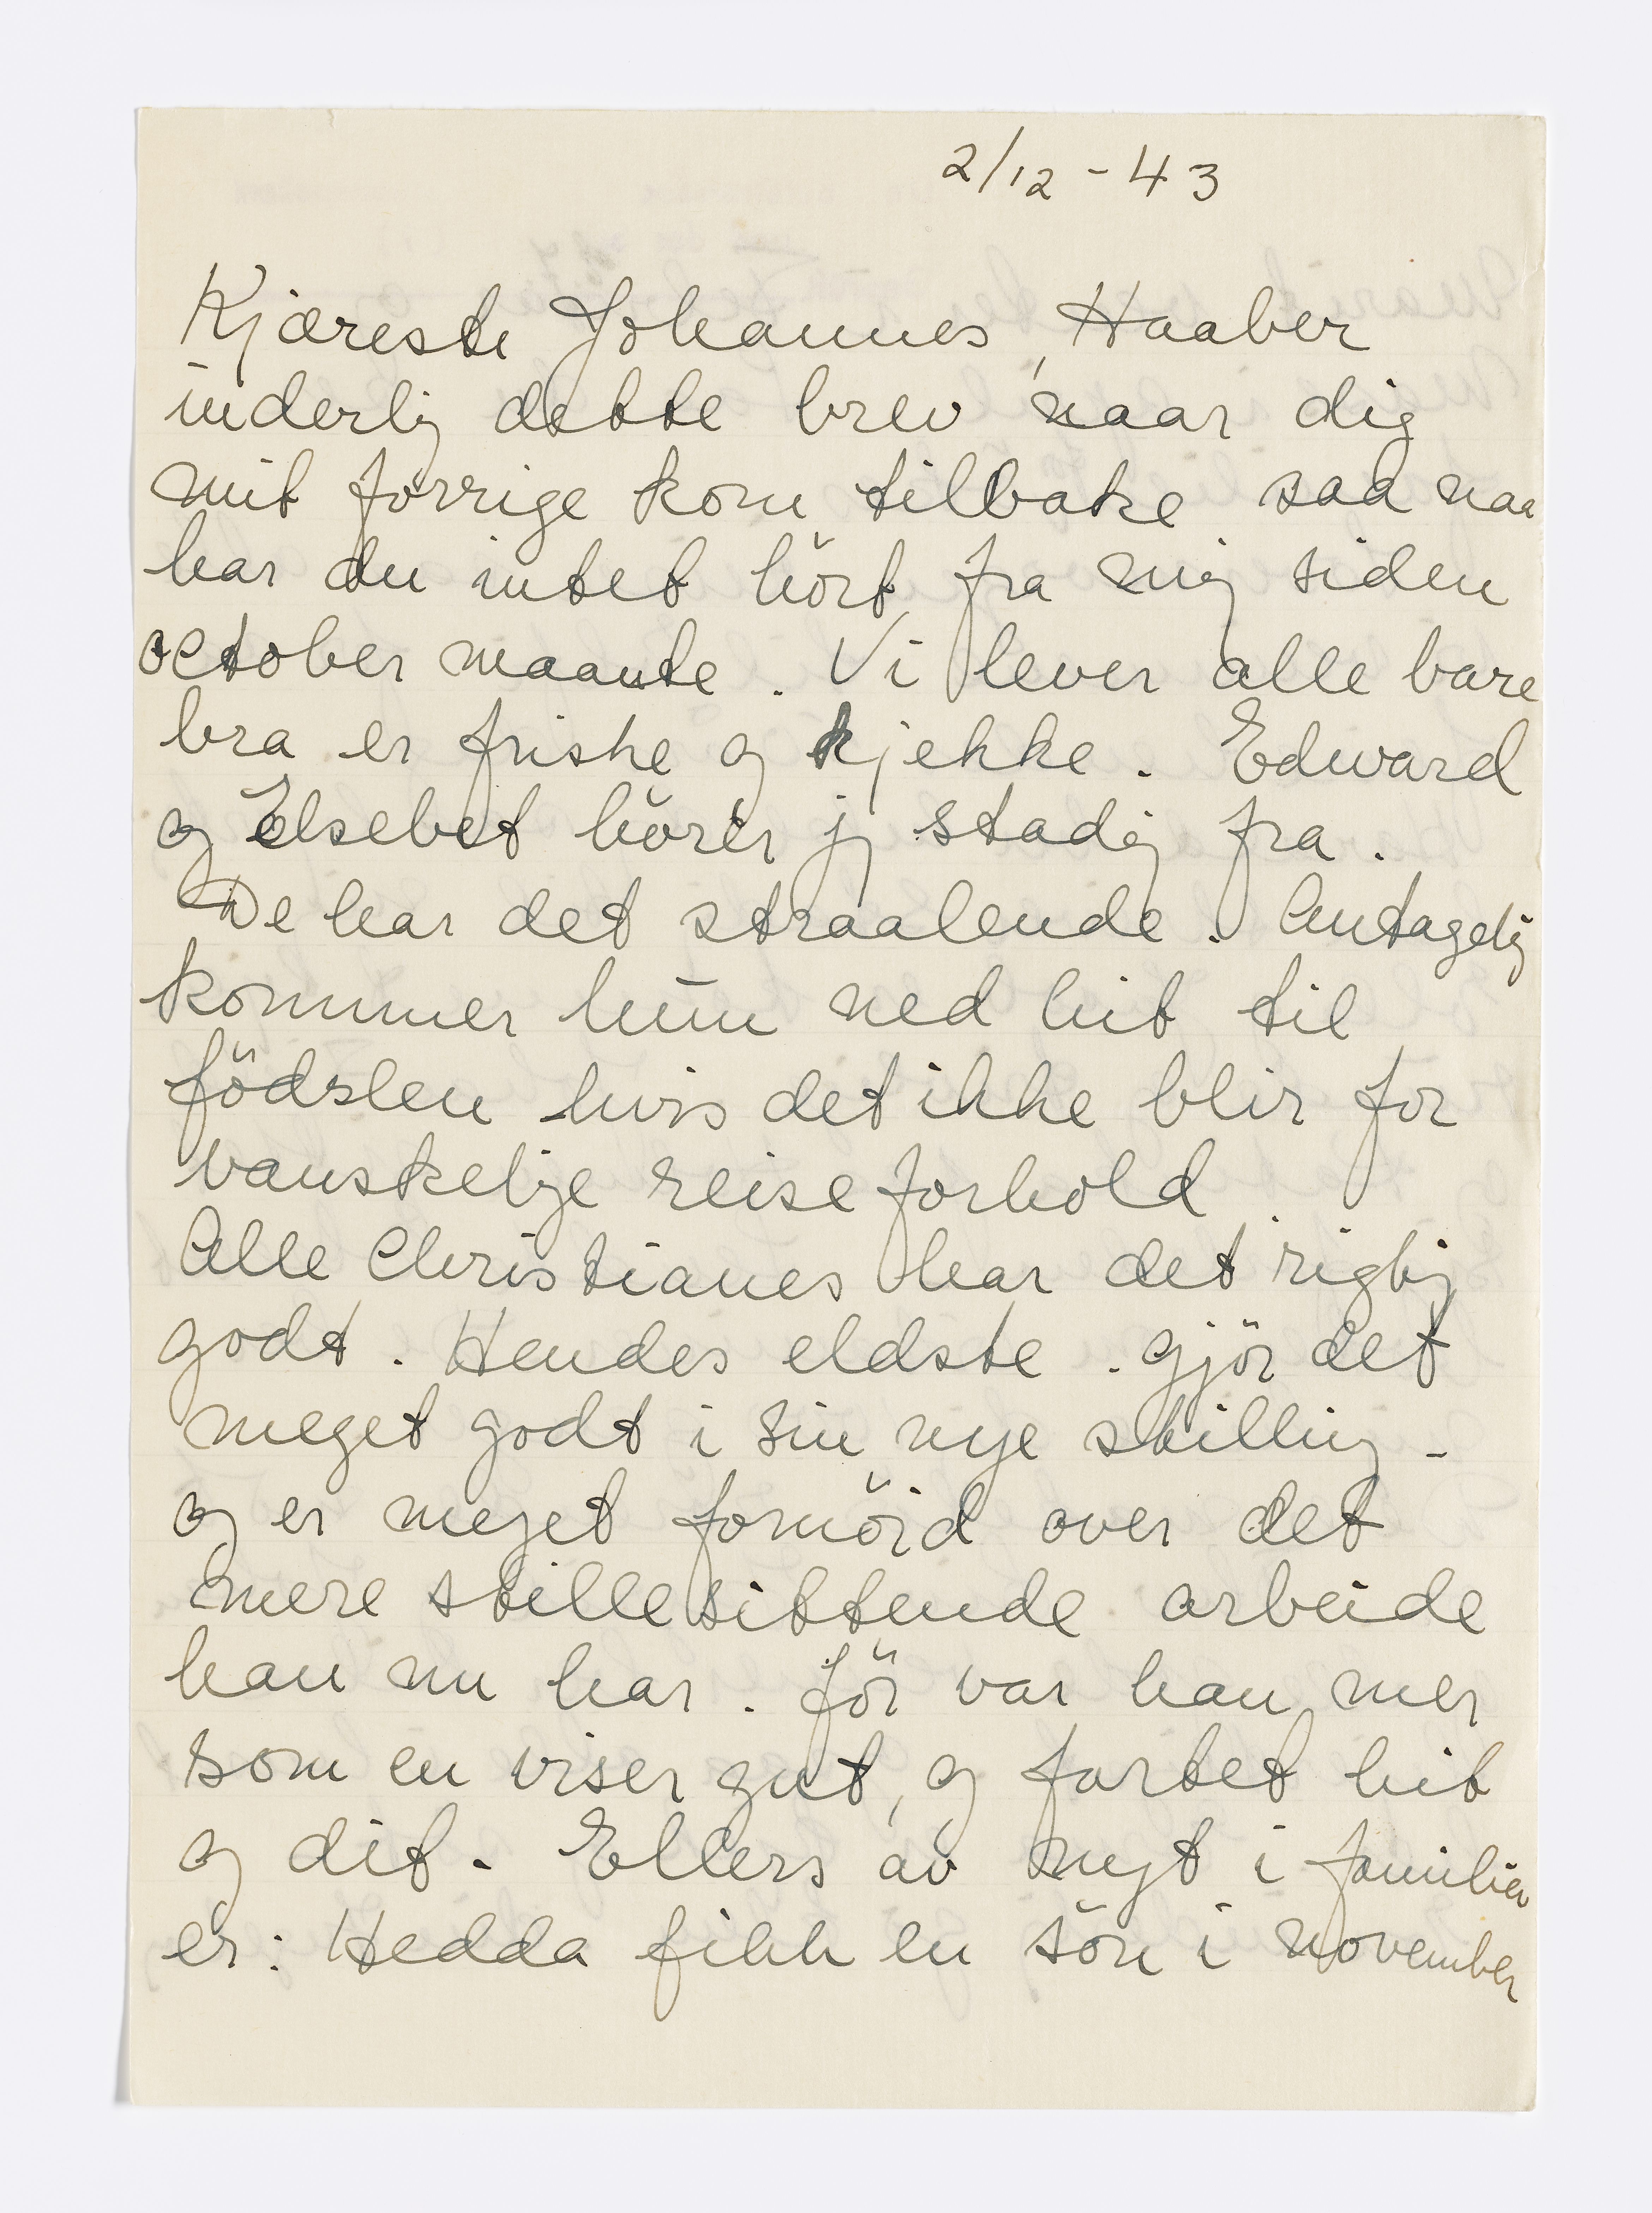 2/12 - 43
Kjæreste Johannes, Haaber
inderlig dette brev naar dig
mit forrige kom tilbake saa naa
har du intet hört fra mig siden
october maante. Vi lever alle bare
bra er friske og kjekke. Edward
og Elsebet hörer jg stadig fra.
De har det straalende. Antagelig
kommer hun ned hit til
födslen hvis det ikke blir for
vanskelige reiseforhold
Alle Christianes har det rigtig
godt. Hendes eldste. gjör det
meget godt i sin nye stilling -
og er meget fornöid over det
mere stillesittende arbeide
han nu har. för var han mer
som en viser gut, og fartet hit
og dit. Ellers av nyt i familien
er: Hedda fikk en sön i november